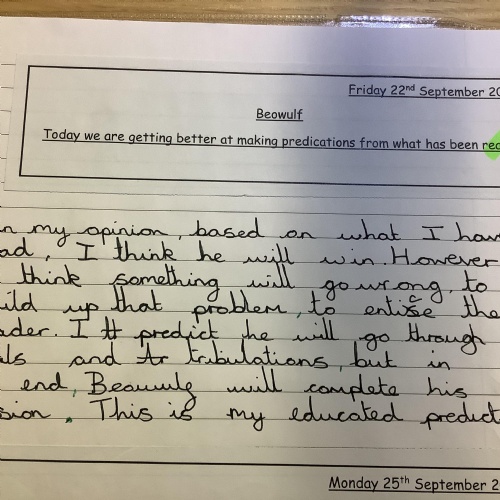 Friday 22nd September 20
Beowulf
Today we are getting better at making predications from what has been rea
n my opinion, based on what I hav
ad, I think he will win. However
think something will go wrong, to
uild up that problem, to entice the
ader. I tt predict he will go through
als and tr tribulations, but in
end, Beowulf will complete his
sion. This is my educated predict
Monday 25th September 2